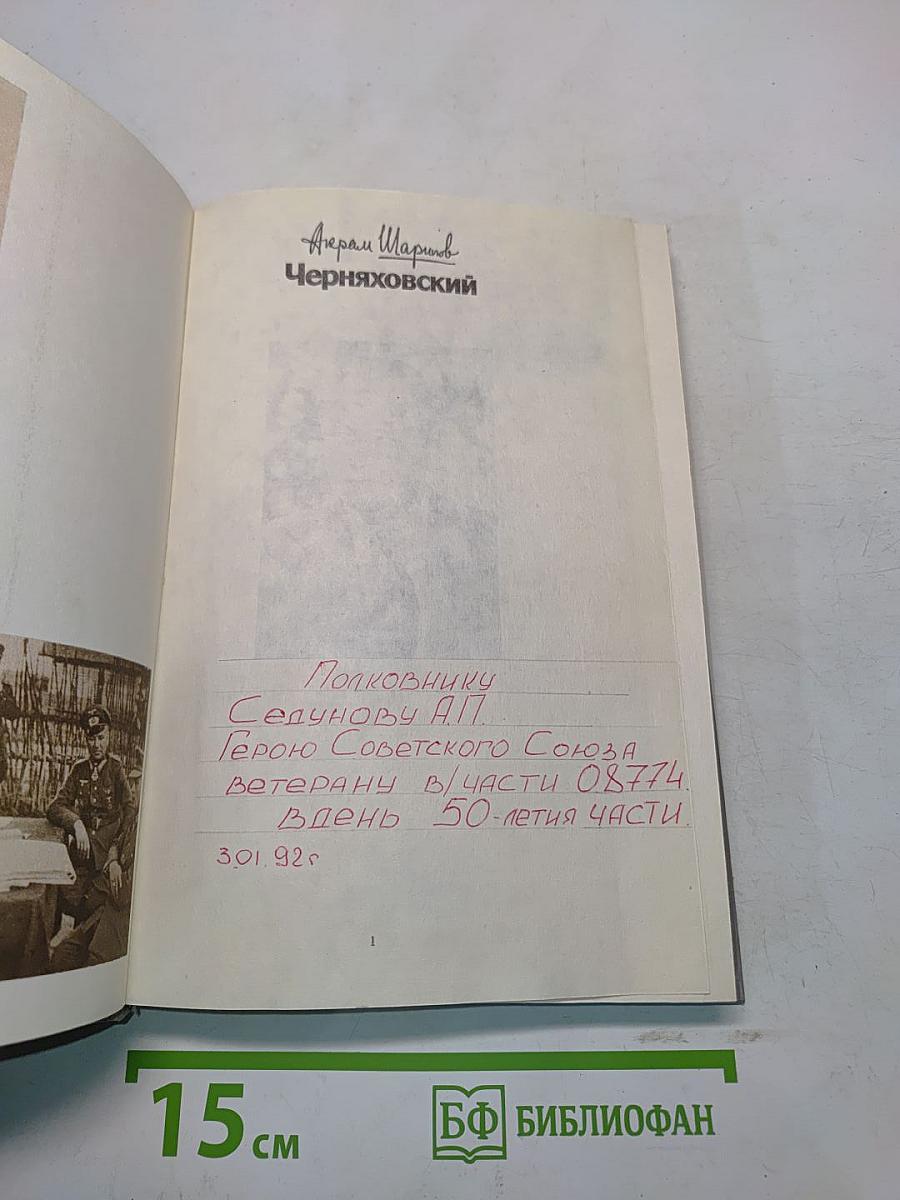 Акрам Шарипов
Черняховский
Полковнику
Седунову А.П.
Герою Советского Союза
ветерану в/части 08774.
в день 50-летия части.
3.01.92г
1
15 см
БФ БИБЛИОФАН